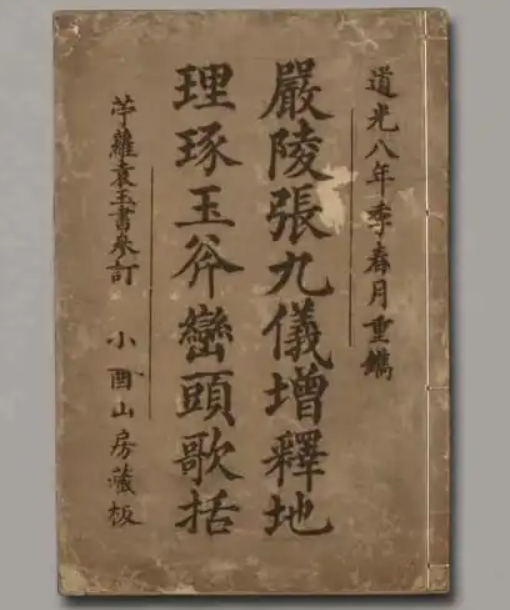 道光八年季春月重鐫
嚴陵張九儀增釋地
理琢玉斧巒頭歌括
苧蘿袁玉書參訂
小酉山房藏板